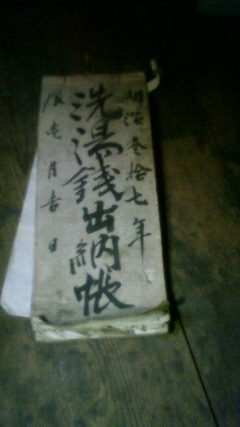 明治参拾七年
洗湯銭出納帳
辰壱月吉日